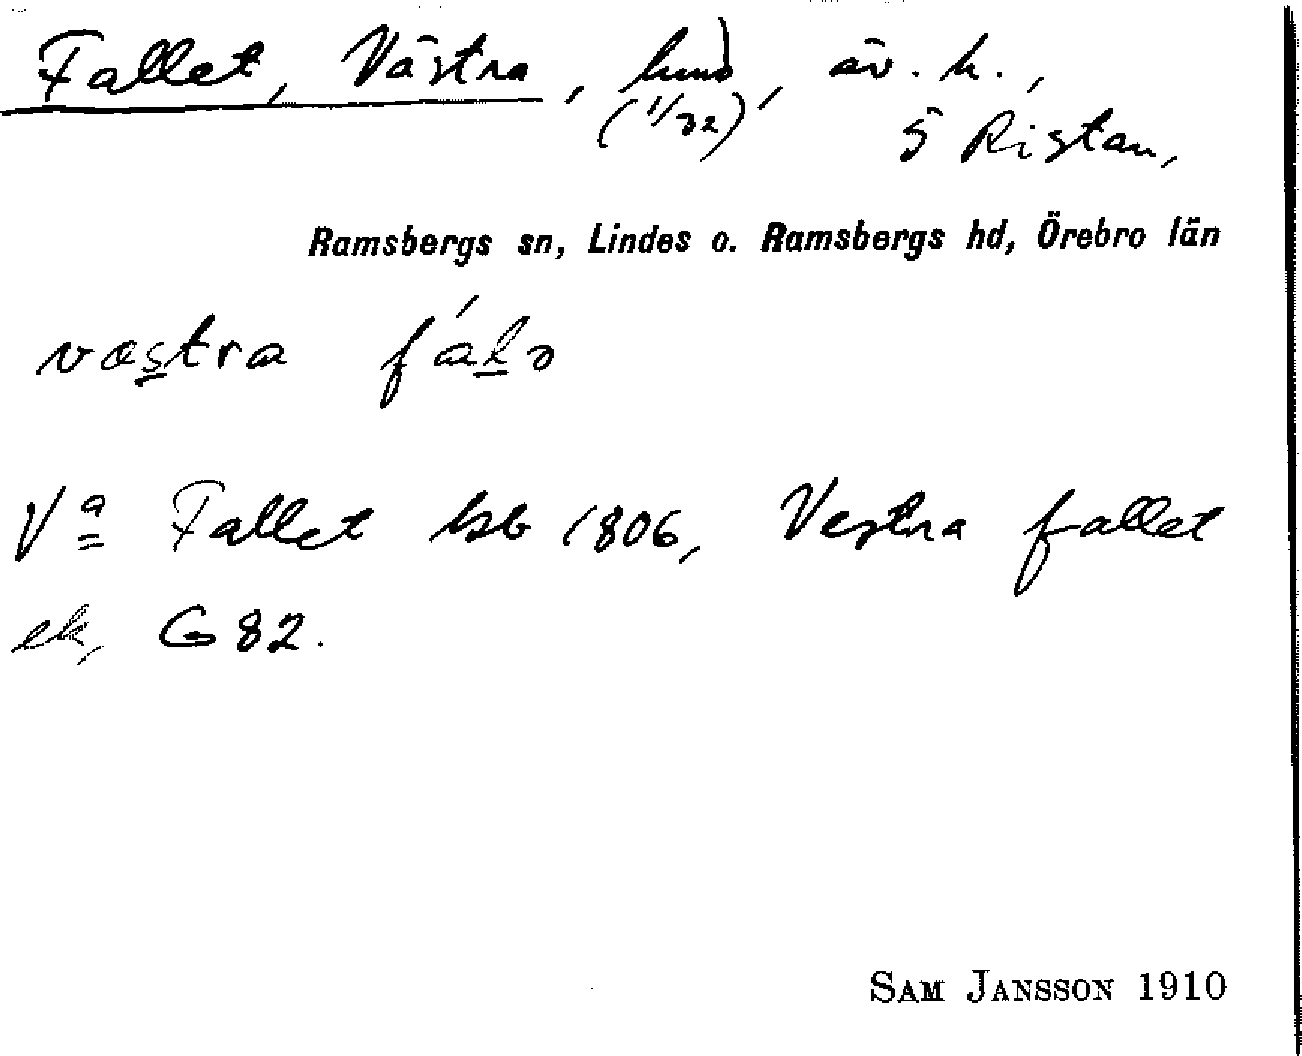 Fallet, Västra, hmd, äv. h.,
(1/32) 5 Ristan,
Ramsbergs sn, Lindes o. Ramsbergs hd, Örebro län
væstra fálə
Va Fallet hsb 1806, Vestra fallet
ek, G 82.
SAM JANSSON 1910